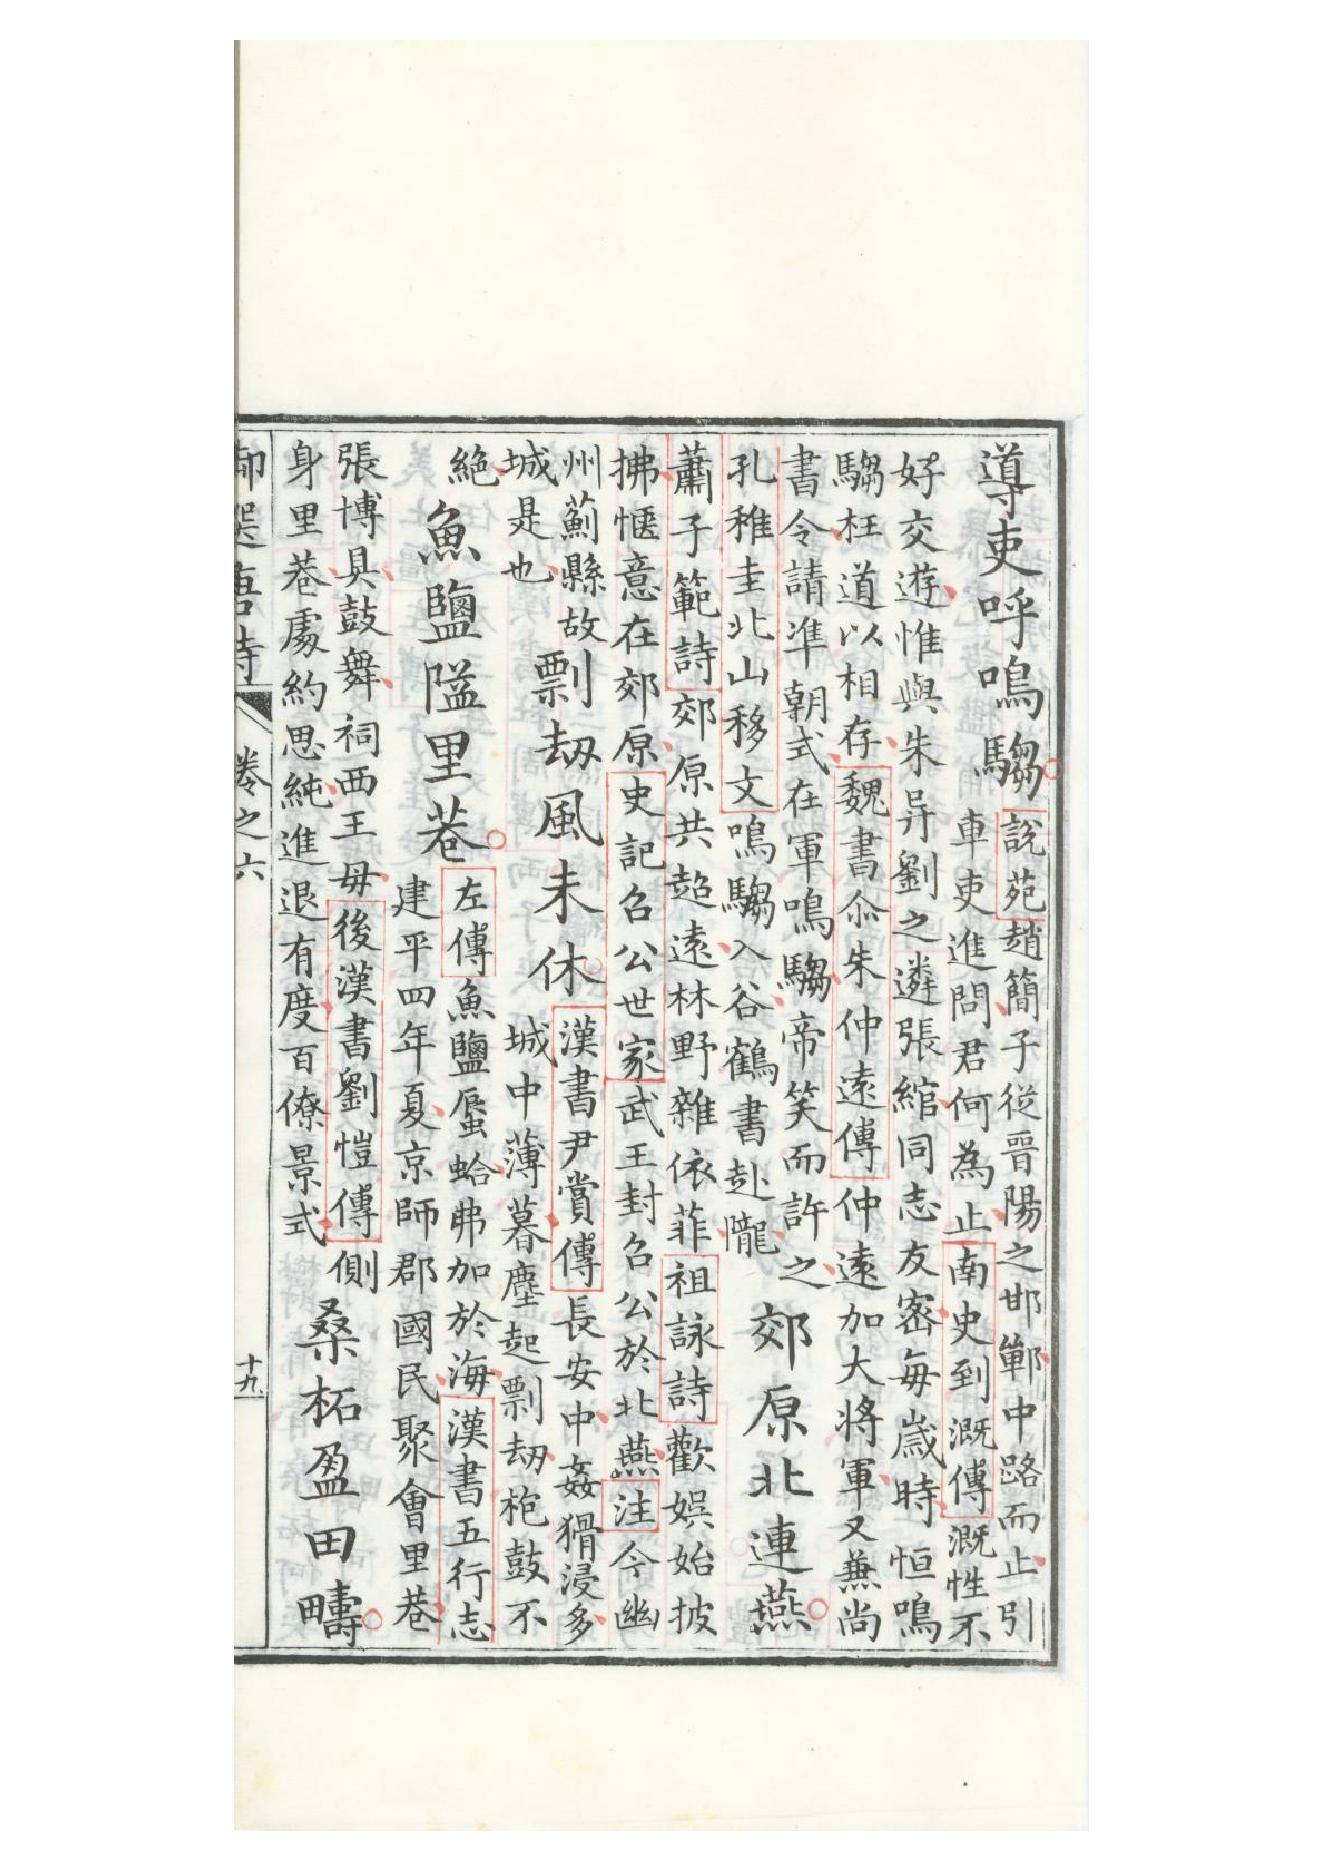 導吏呼鳴騶
說苑趙簡子從晉陽之邯鄲中路而止引
車吏進問君何為止南史到溉傳溉性不
好交遊惟與朱异劉之遴張綰同志友密每歲時恒鳴
騶枉道以相存魏書尒朱仲遠傳仲遠加大將軍又兼尚
書令請準朝式在軍鳴騶帝笑而許之
孔稚圭北山移文鳴騶入谷鶴書赴隴
郊原北連燕
蕭子範詩郊原共超遠林野雜依菲祖詠詩歡娛始披
拂愜意在郊原史記召公世家武王封召公於北燕注今幽
州薊縣故
城是也
剽刼風未休
漢書尹賞傳長安中姦猾浸多
城中薄暮塵起剽刼枹鼓不
絕
魚鹽隘里巷
左傳魚鹽蜃蛤弗加於海漢書五行志
建平四年夏京師郡國民聚會里巷
張博具鼓舞祠西王母後漢書劉愷傳側
身里巷處約思純進退有度百僚景式
桑柘盈田疇
御選唐詩
卷之六
十九